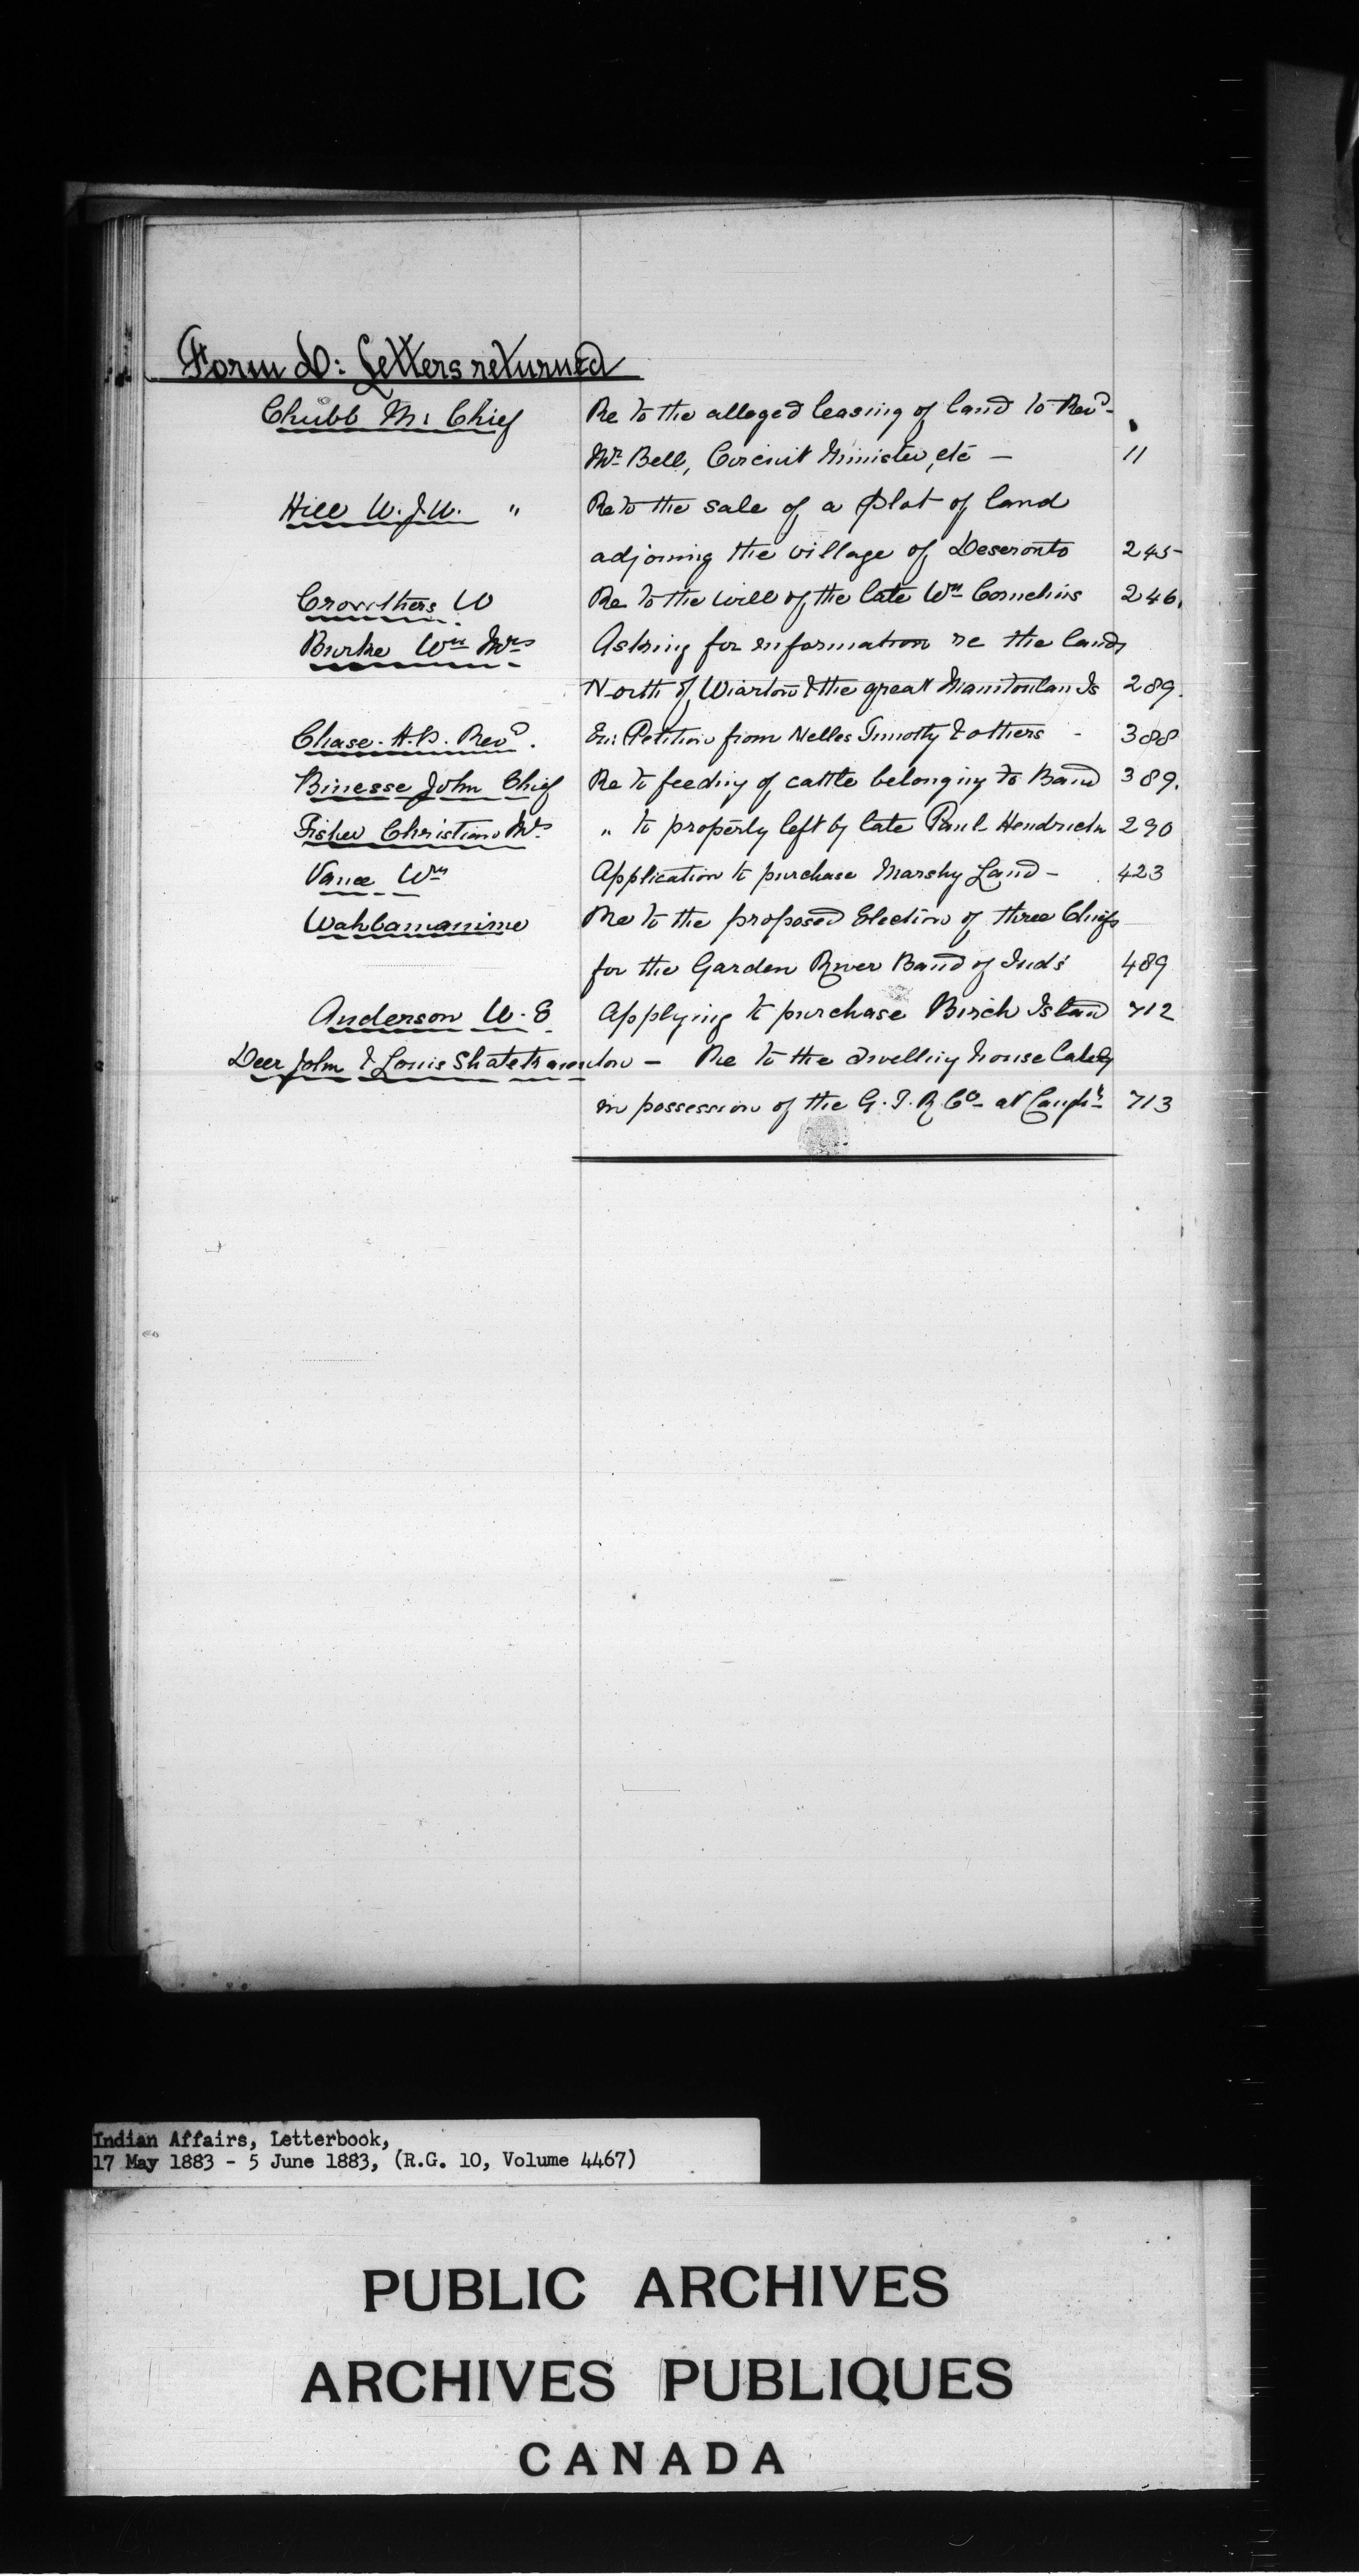 Form D: Letters returned
Chubb M: Chief Re to the alleged leasing of land to Revd.
Mr. Bell, Circuit Minister, etc — 11
Hill W. J. W. " Re to the sale of a plot of land
adjoining the village of Deseronto 245
Crowthers W Re to the will of the late Wm Cornelius 246.
Burke Wm Mrs Asking for information re the lands
North of Wiarton & the great Manitoulin Is 289.
Chase. H. P. Revd. En: Petition from Nelles Timothy & others - 388
Binesse John Chief Re to feeding of cattle belonging to Band 389.
Fisher Christian Mrs. " to property left by late Paul Hendrick 290
Vance Wm Application to purchase Marshy Land – 423
Wahbamanime Re to the proposed Election of three Chiefs
for the Garden River Band of Inds 489
Anderson W. E. Applying to purchase Birch Island 712
Deer John & Louis – Re to the dwelling house lately
in possession of the G. T. R. Co. at 713
Indian Affairs, Letterbook,
17 May 1883 - 5 June 1883, (R.G. 10, Volume 4467)
PUBLIC ARCHIVES
ARCHIVES PUBLIQUES
CANADA